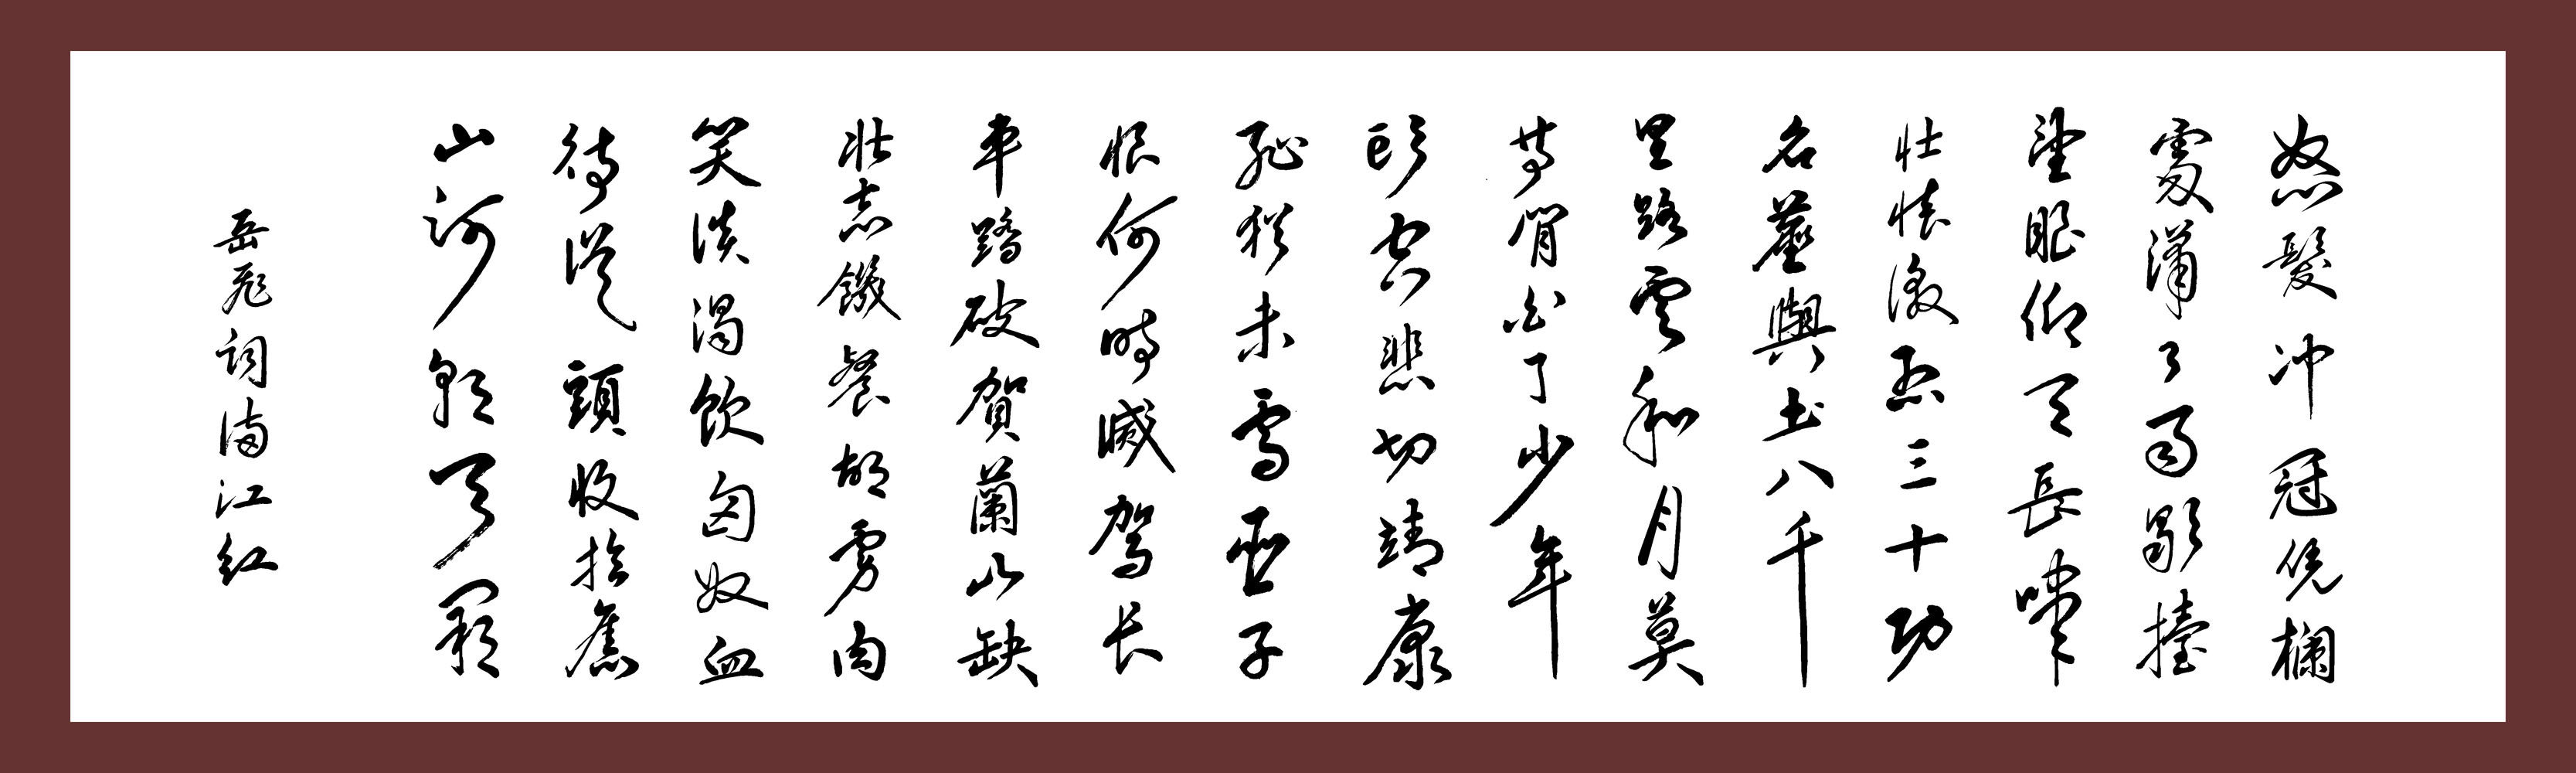 怒髮冲冠凭欄
處瀟々雨歇擡
望眼仰天長嘯
壯懷激烈三十功
名塵與土八千
里路雲和月莫
等閒白了少年
頭空悲切靖康
恥猶未雪臣子
恨何時滅駕长
車踏破賀蘭山缺
壯志饑餐胡虜肉
笑談渴飲匈奴血
待從頭收拾舊
山河朝天闕
岳飛词满江红